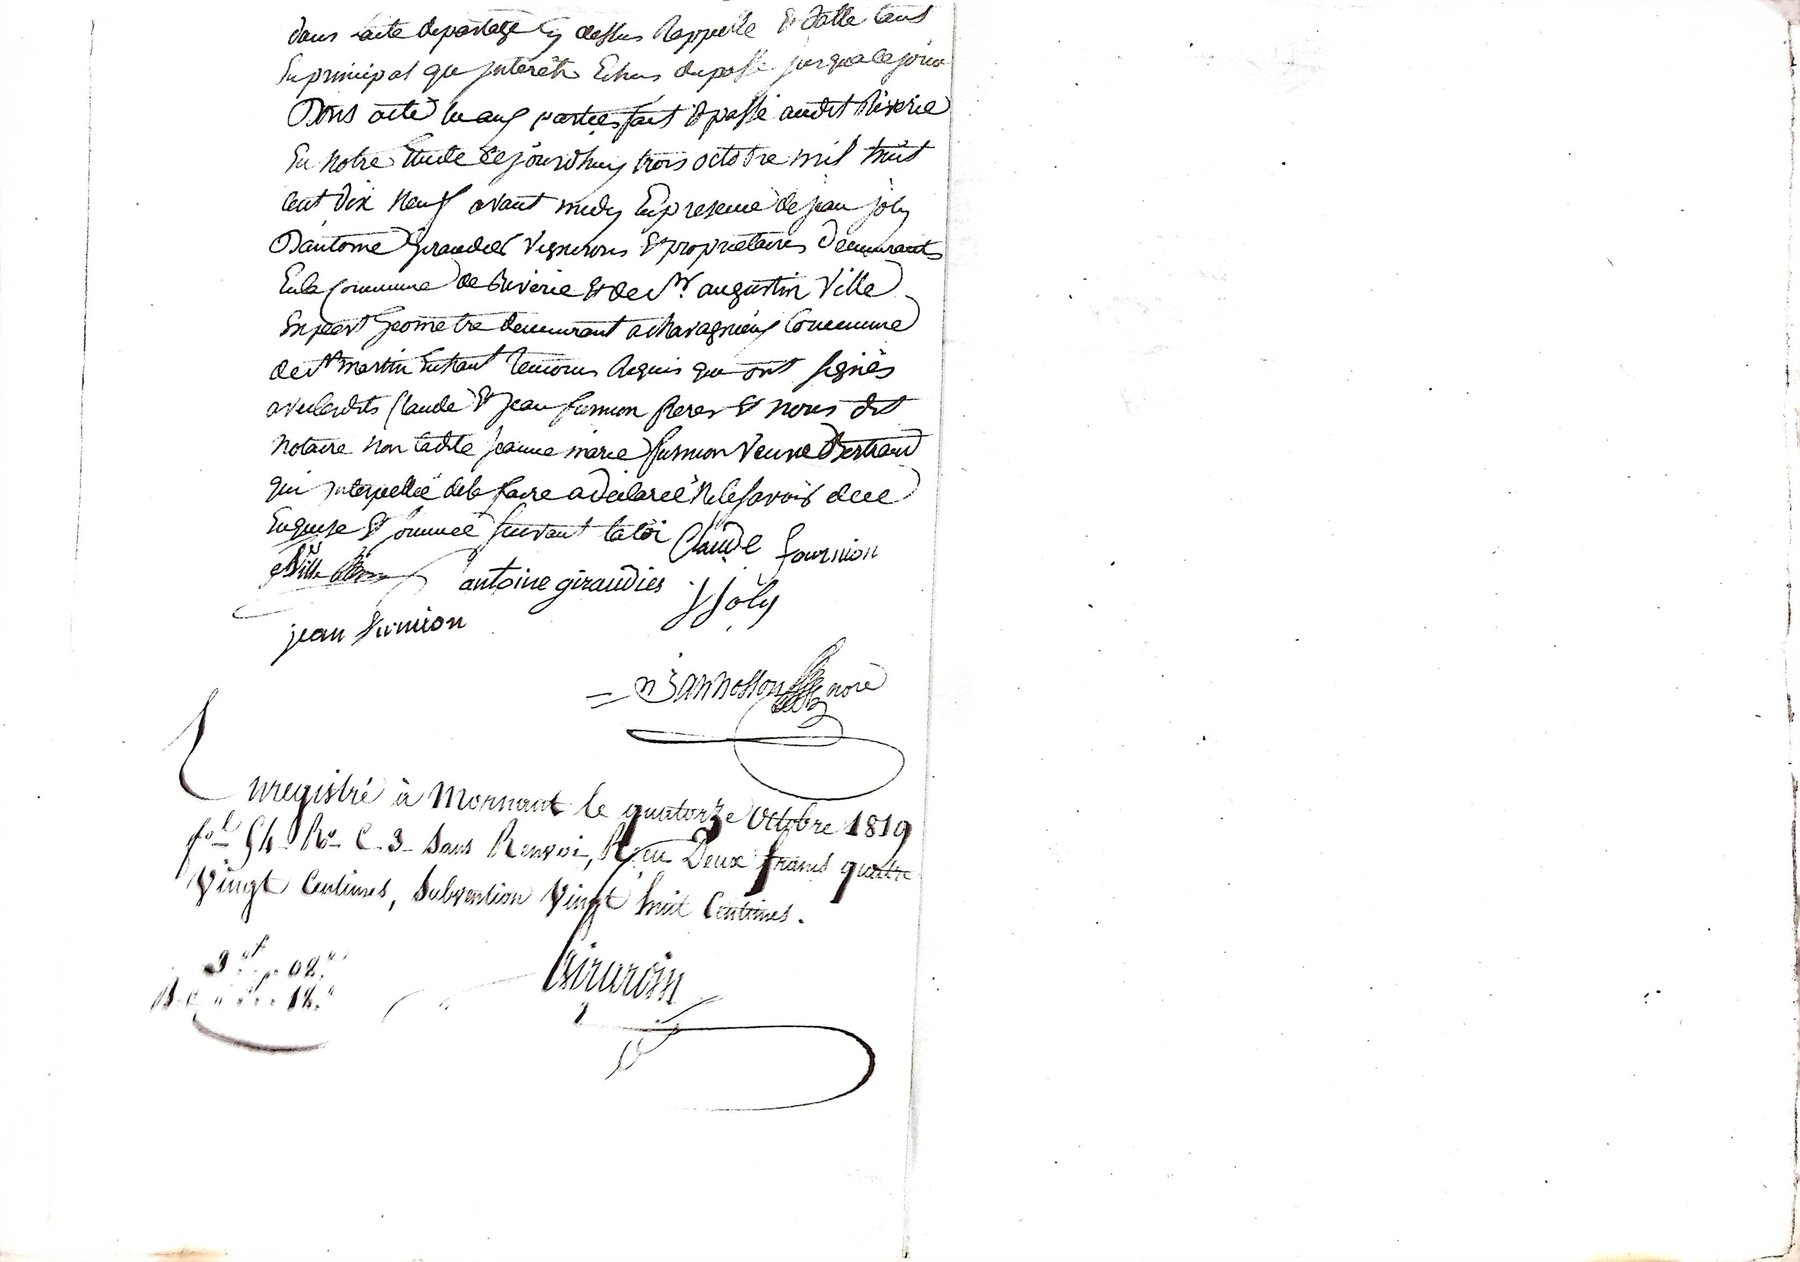 dans l'acte departage cy dessus Rappellé & datté tant
En principal que jnterêts Echus dupassé jusqua ce jour
Dont acte lu aux parties fait & passé audit Riverie
En notre Etude Cejourdhuy trois octobre mil huit
Cent Dix Neuf avant midy En presence de jean joly
D'antoine Giraudier Vignerons & propriétaires demeurants
En la Commune de Riverie & de Sr augustin Ville
Expert Géometre demeurant a Chavagnieux Commune
de St martin En haut temoins Requis qui ont signés
avec lesdits Claude & jean furnion freres & nous dit
notaire non ladte jeanne marie furnion Veuve Bertrand
qui jnterpellée de le faire a déclarée Ne le savoir de ce
Enquise & sommée suivant la loi Claude fournion
aVille antoine giraudier jjoly
jean furnion
n
nore
Enregistré à Mornant le quatorze Octobre 1819
fol 54 Ro C. 3 Sans Renvoi, Reçu Deux francs quatre
Vingt Centimes, Subvention Vingt huit Centimes.
3 f. 08 c